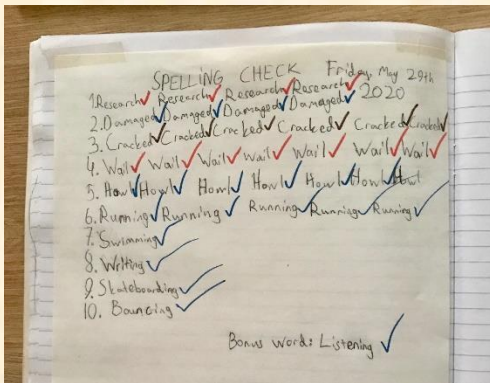 SPELLING CHECK Friday, May 29th
2020
1. Research Research Research Research
2. Damaged Damaged Damaged Damaged
3. Cracked Cracked Cracked Cracked Cracked Cracked
4. Wail Wail Wail Wail Wail Wail Wail
5. Howl Howl Howl Howl Howl Howl Howl
6. Running Running Running Running Running
7. Swimming
8. Writing
9. Skateboarding
10. Bouncing
Bonus Word: Listening